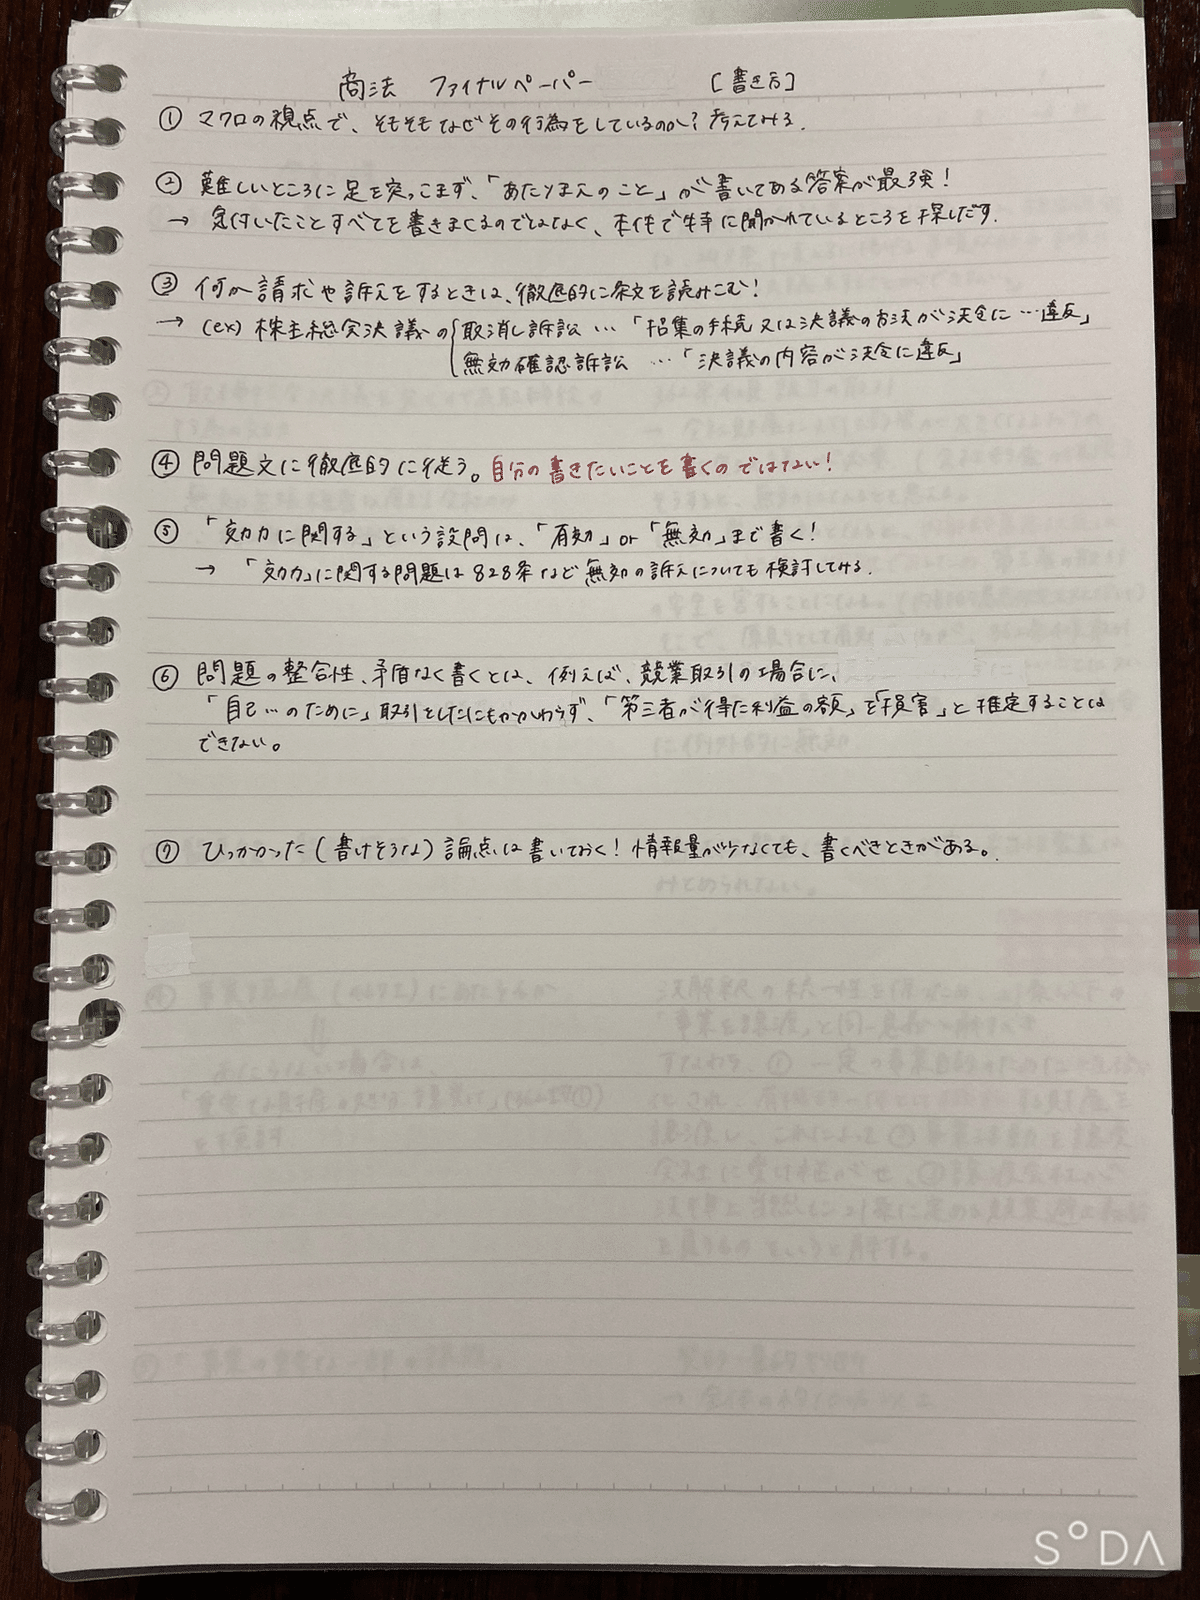 商法 ファイナルペーパー [書き方]
① マクロの視点で、そもそもなぜその行為をしているのか？考えてみる.
② 難しいところに足を突っこまず、「あたりまえのこと」が書いてある答案が最強！
→ 気付いたことすべてを書きまくるのではなく、本件で特に聞かれているところを探しだす.
③ 何か請求や訴えをするときは、徹底的に条文を読みこむ！
→ (ex) 株主総会決議の 取消し訴訟 … 「招集の手続又は決議の方法が法令に…違反」
無効確認訴訟 … 「決議の内容が法令に違反」
④ 問題文に徹底的に従う。自分の書きたいことを書くのではない！
⑤ 「効力に関する」という設問は、「有効」or「無効」まで書く！
→ 「効力」に関する問題は828条など無効の訴えについても検討してみる.
⑥ 問題の整合性、矛盾なく書くとは、例えば、競業取引の場合に、
「自己…のために」取引をしたにもかかわらず、「第三者が得た利益の額」を「損害」と推定することは
できない。
⑦ ひっかかった(書けそうな)論点は書いておく！情報量が少なくても、書くべきときがある。
SODA